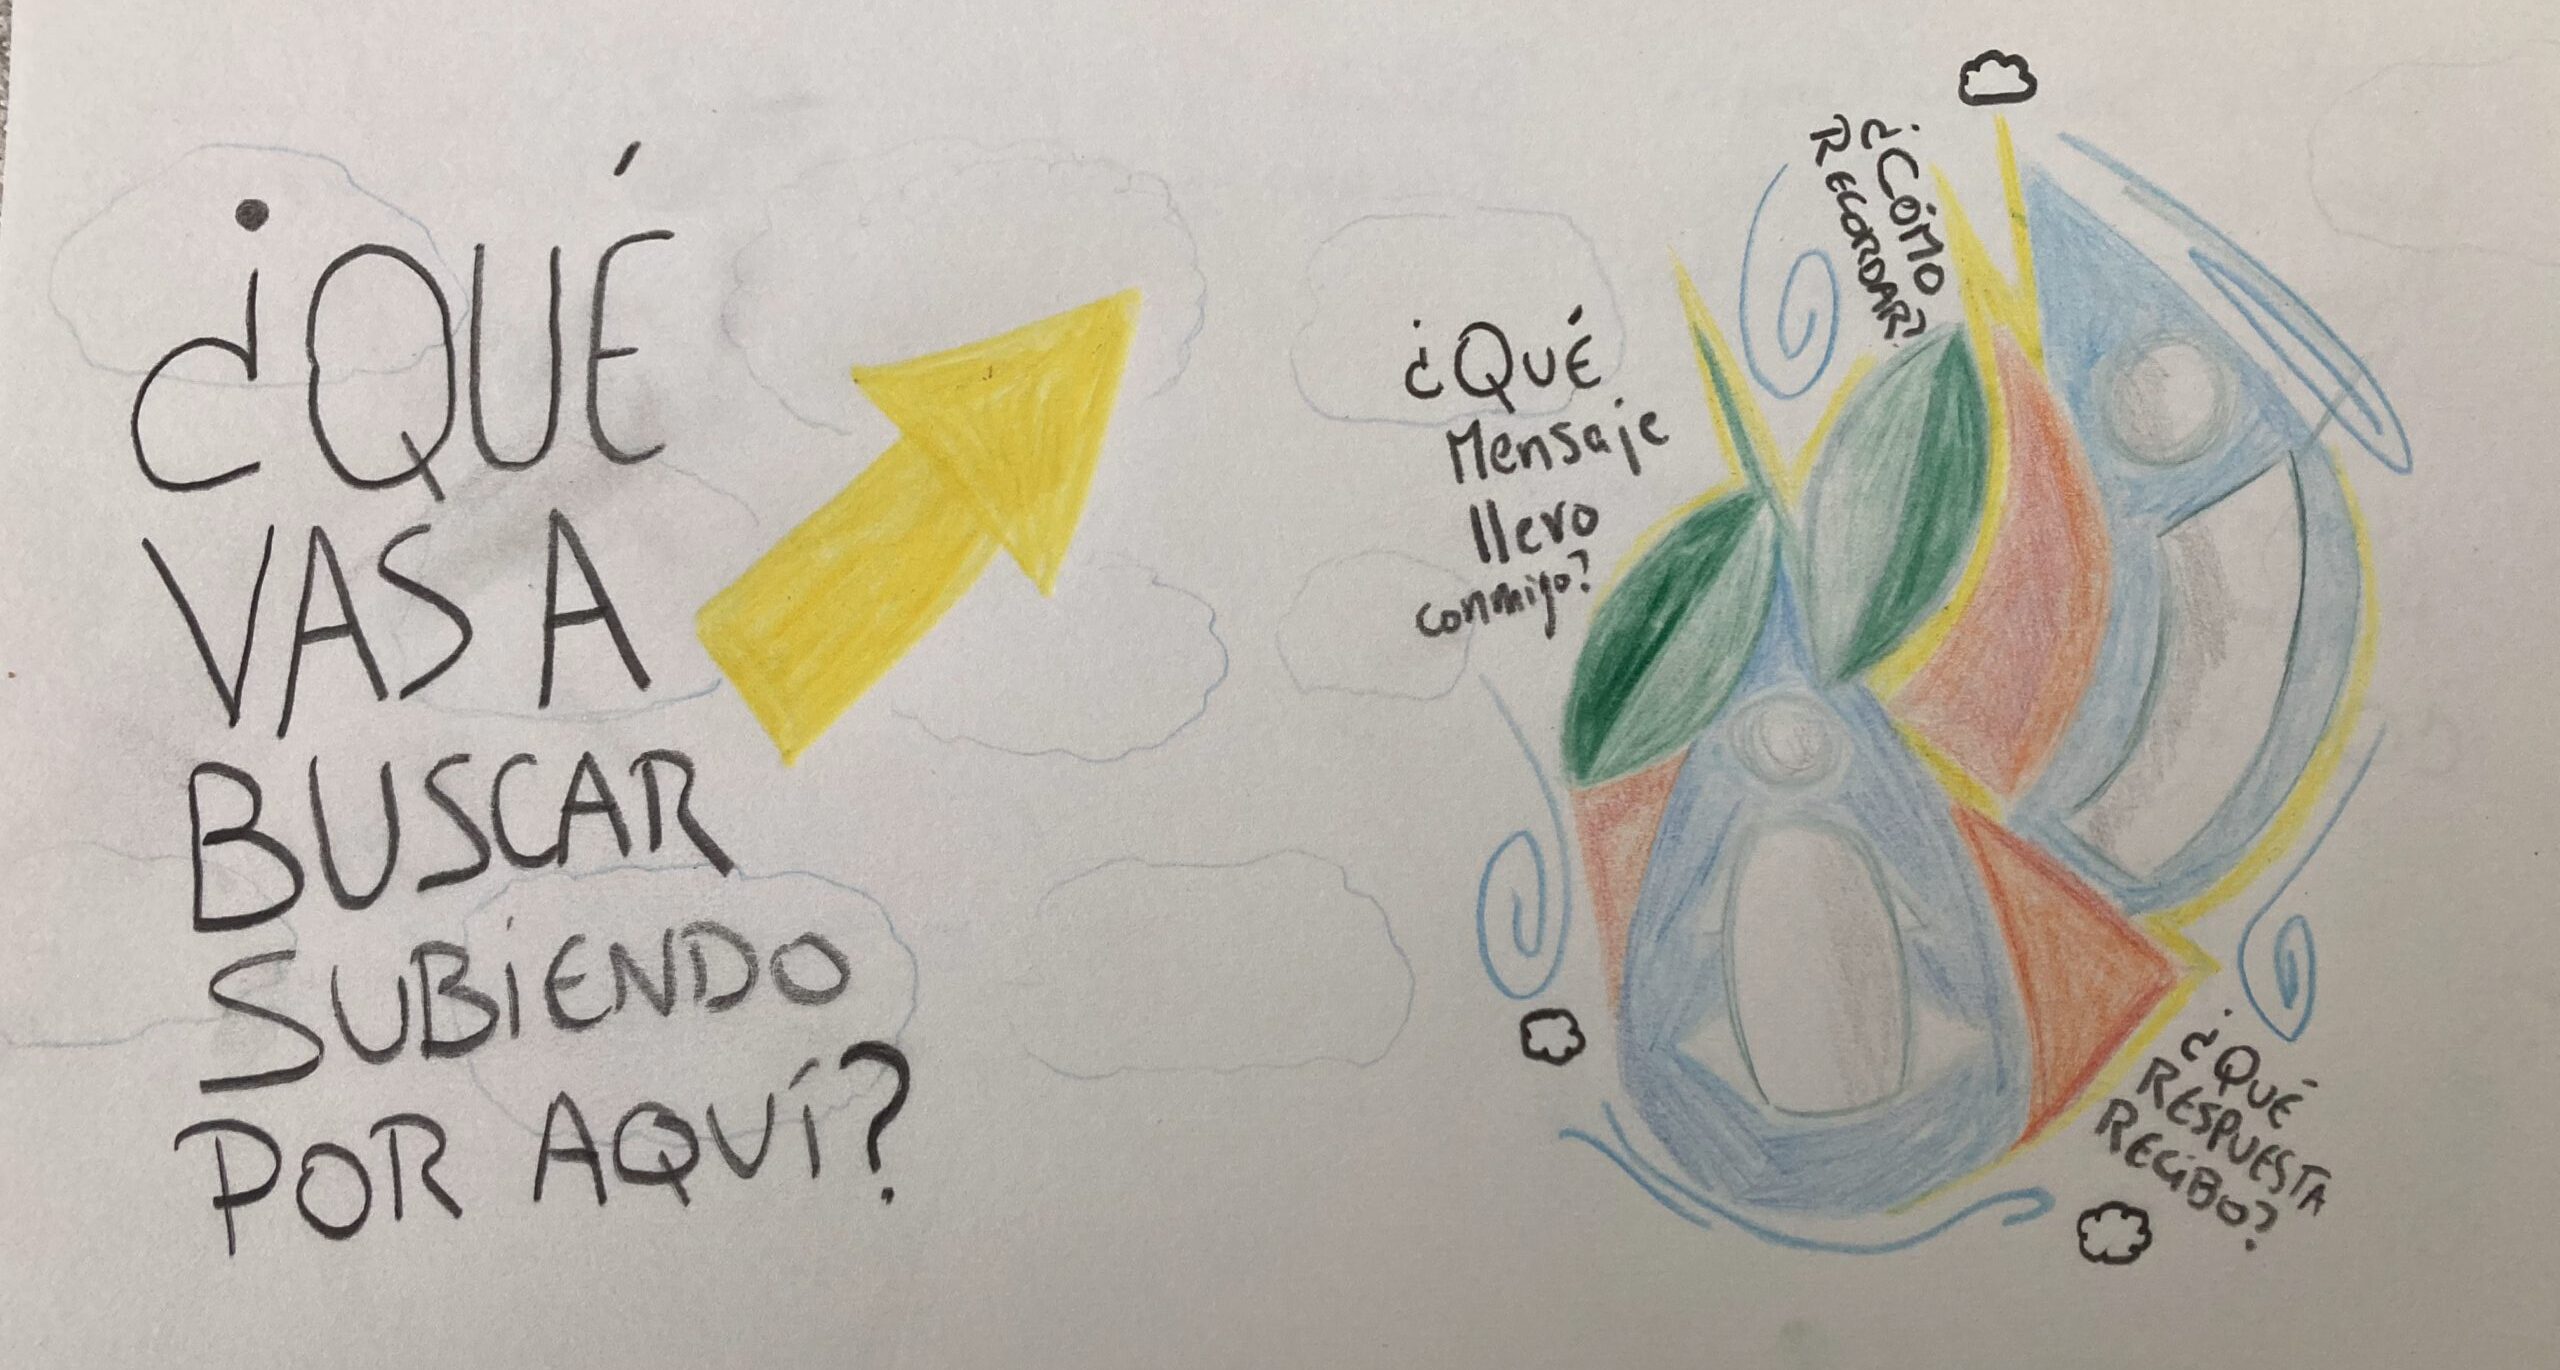 ¿QUÉ
VAS A
BUSCAR
SUBIENDO
POR AQUÍ?
¿QUÉ
Mensaje
llevo
conmigo?
¿CÓMO
RECORDAR?
¿QUÉ
RESPUESTA
RECIBO?